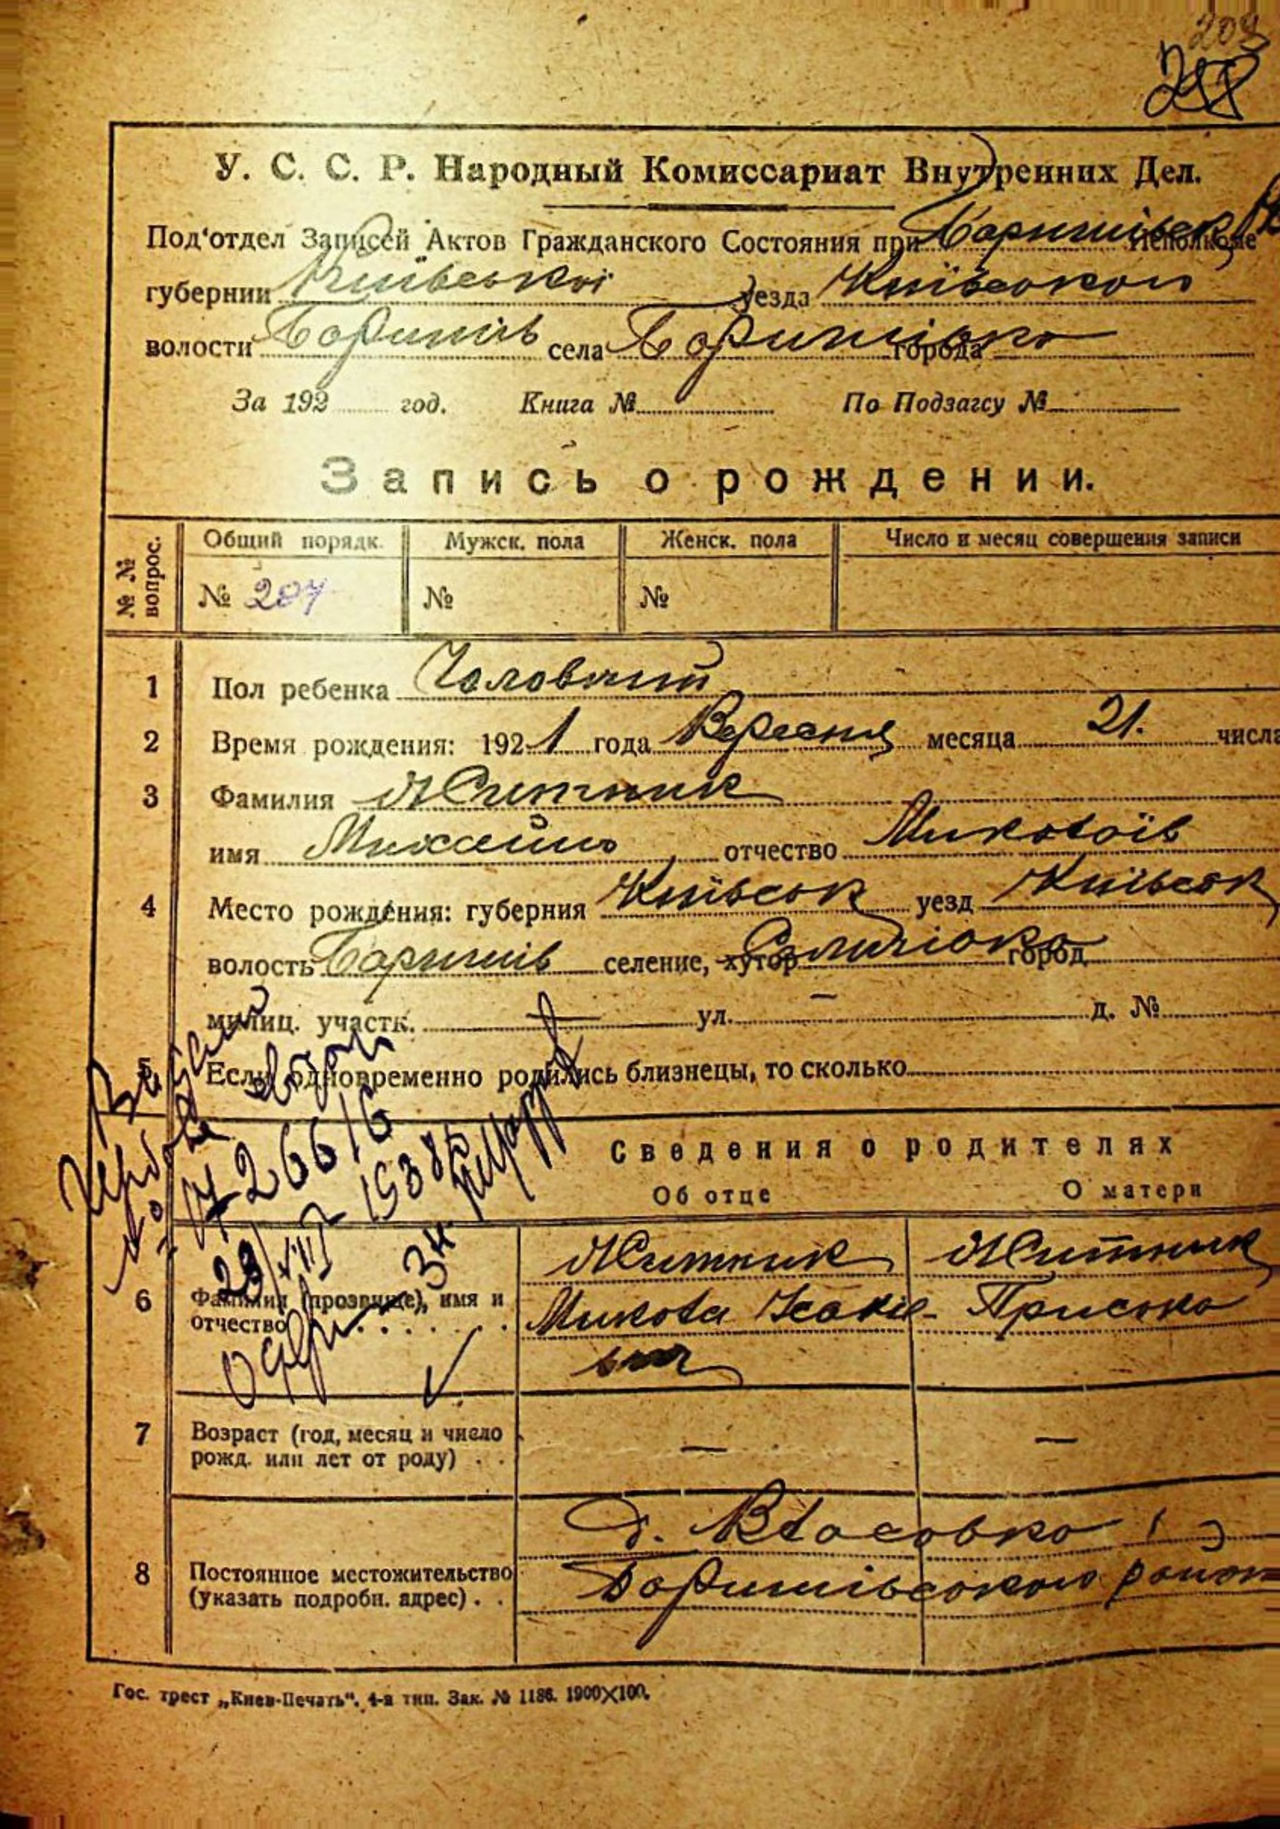 203
У. С. С. Р. Народный Комиссариат Внутренних Дел.
Под'отдел Записей Актов Гражданского Состояния при Баришівськ Исполкоме
губернии Київської уезда Київського
волости Баришів села Баришівка города
За 192 год. Книга № По Подзагсу №
Запись о рождении.
№ № вопрос. Общий порядк. Мужск. пола Женск. пола Число и месяц совершения записи
№ 207 № №
1 Пол ребенка Чоловічий
2 Время рождения: 1921 года Вересня месяца 21. числа
3 Фамилия Житник
имя Михайло отчество Миколаїв
4 Место рождения: губерния Київськ уезд Київськ
волость Баришів селение, хутор город
милиц. участк. — ул. — д. №
5 Если одновременно родились близнецы, то сколько
Сведения о родителях
Об отце О матери
6 Фамилия (прозвище), имя и отчество Житник Микола Житник Приська
7 Возраст (год, месяц и число рожд. или лет от роду) — —
8 Постоянное местожительство (указать подробн. адрес) д. Власовка Баришівського район
Видали повторн
№ 0726616
23/VIII 1938
Гос. трест „Киев-Печать“. 4-я тип. Зак. № 1186. 1900×100.